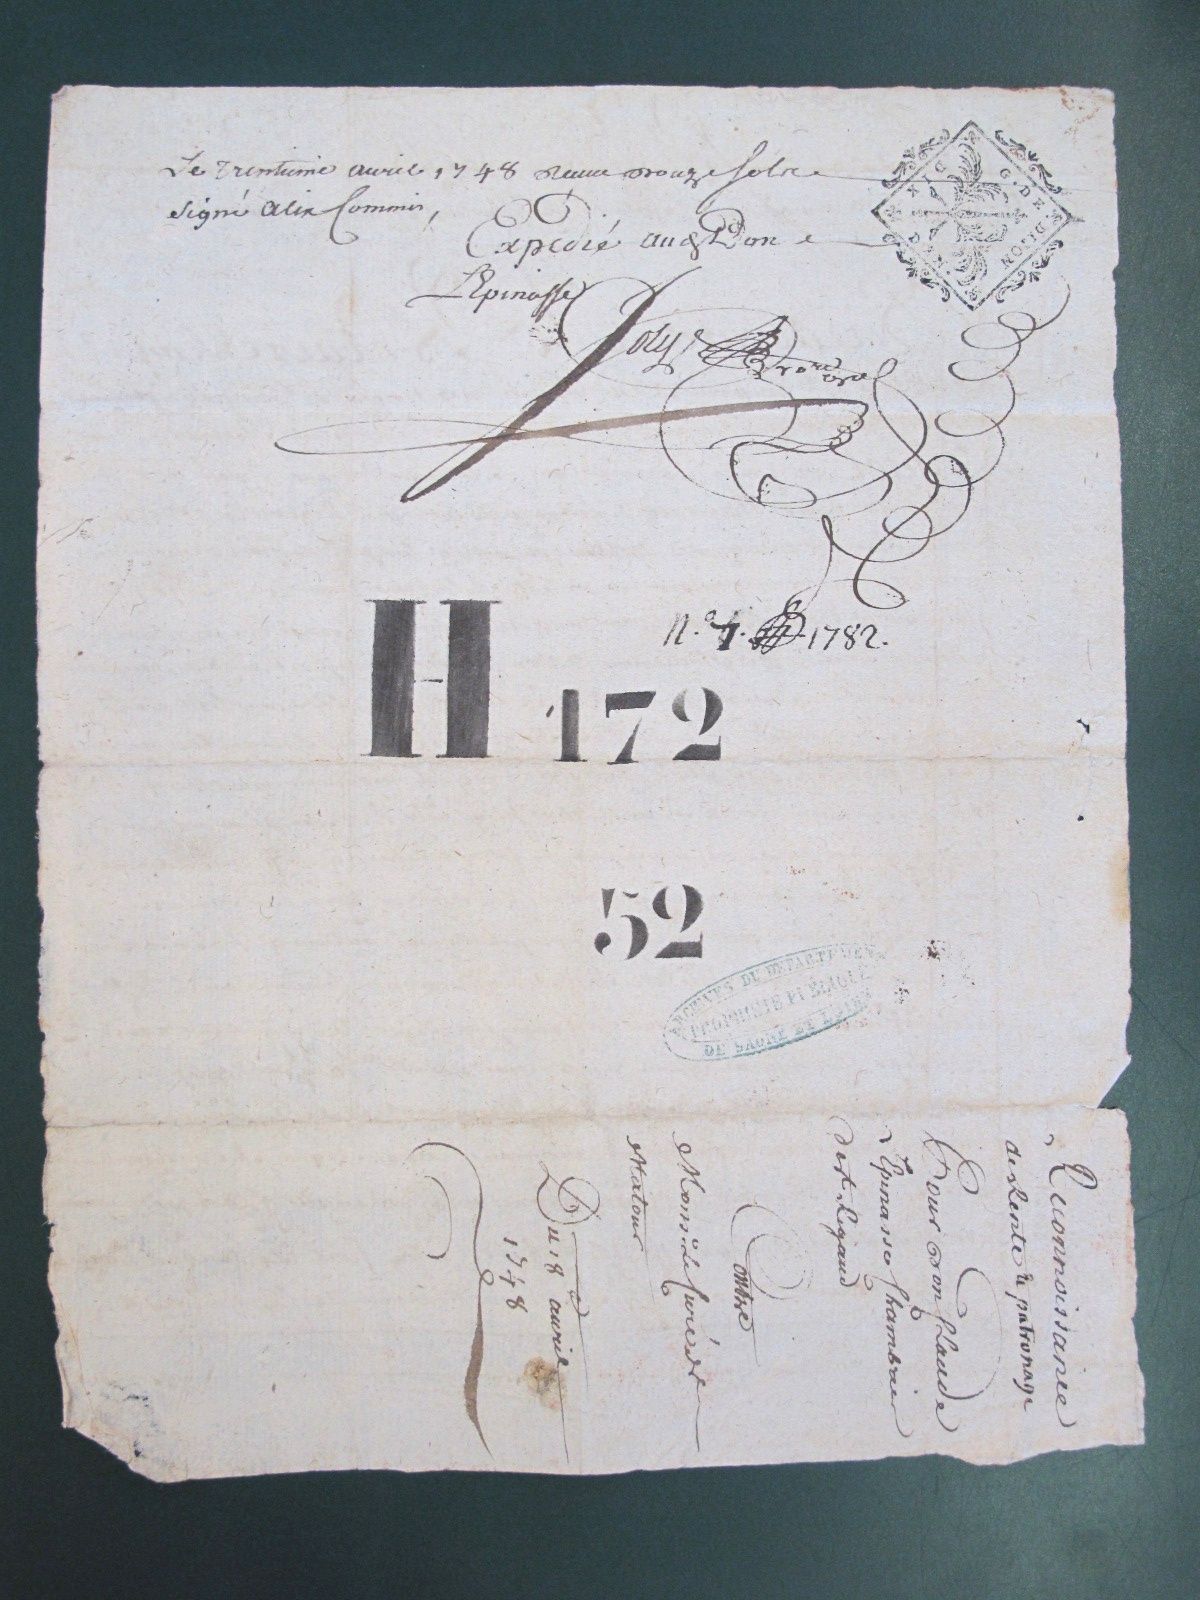 Le trentieme avril 1748 Reçu douze sols
signé Alix Commis,
Expedié aud. Don
Lepinasse
Joly
G. DE. DIJON
H 172
n.° 7. 1782.
52
ARCHIVES DU DEPARTEMENT
DE SAONE ET LOIRE
Reconnoissance
de Rente et patronage
Pour Don Claude
Lepinasse Chambrier
dart Rigaud
Contre
Monsr. Le Curé de
Matour
Du 18 avril
1748